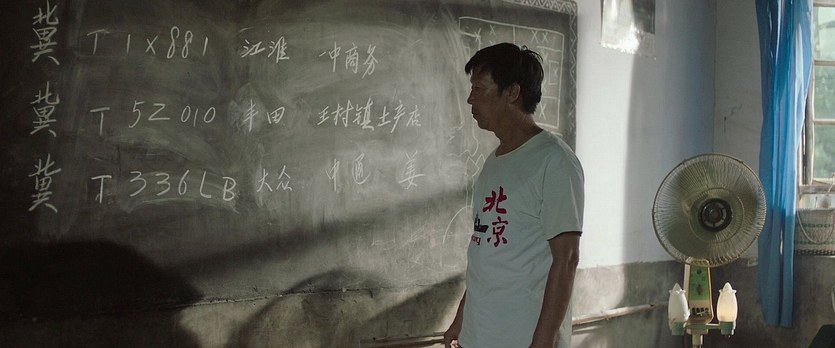 冀 T 1X881 江淮 一中商务
冀 T 5Z010 丰田 王村镇土产店
冀 T 336LB 大众 中通 姜
北京